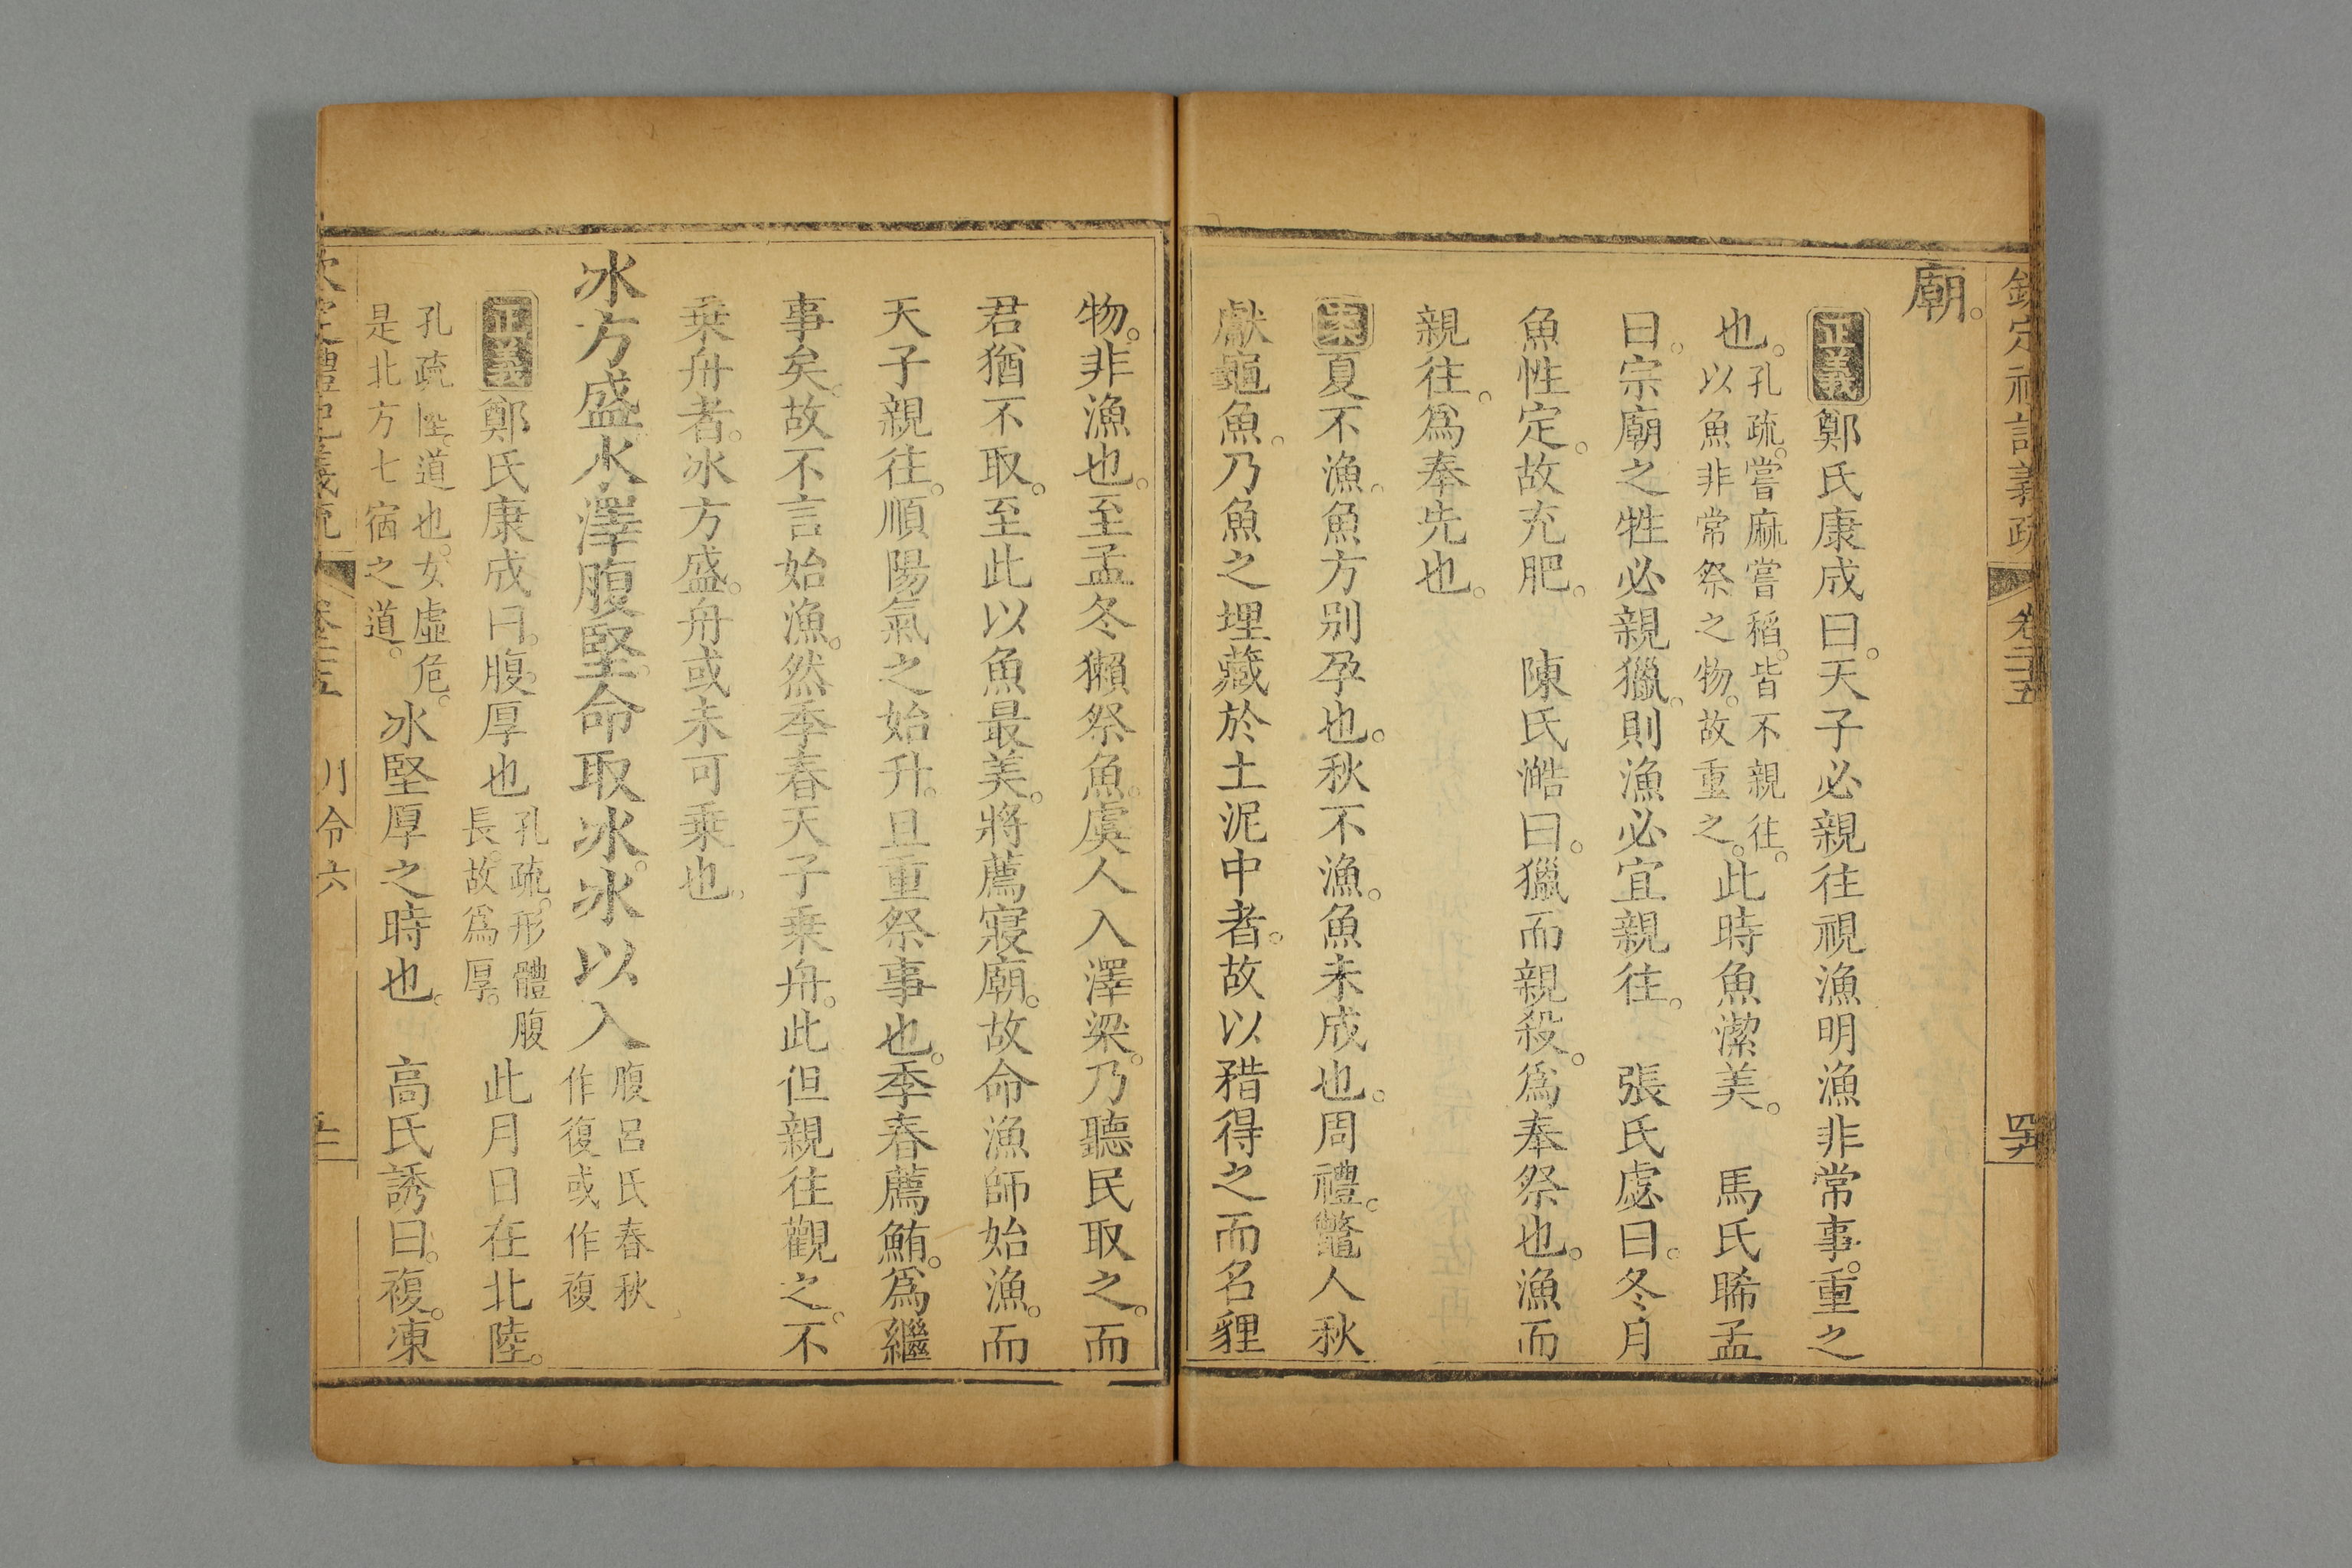 欽定禮記義疏 卷二十五
廟。
正義鄭氏康成曰。天子必親往視漁明漁非常事。重之
也。孔疏。嘗麻嘗稻。皆不親往。以魚非常祭之物。故重之。此時魚潔美。 馬氏晞孟
曰。宗廟之牲必親獵。則漁必宜親往。 張氏處曰。冬月
魚性定。故充肥。 陳氏澔曰。獵而親殺。爲奉祭也。漁而
親往。爲奉先也。
案夏不漁。魚方别孕也。秋不漁。魚未成也。周禮。鼈人秋
獻龜魚。乃魚之埋藏於土泥中者。故以矠得之而名貍
物。非漁也。至孟冬獺祭魚。虞人入澤梁。乃聽民取之。而
君猶不取。至此以魚最美。將薦寢廟。故命漁師始漁。而
天子親往。順陽氣之始升。且重祭事也。季春薦鮪。爲繼
事矣。故不言始漁。然季春天子乗舟。此但親往觀之。不
乗舟者。冰方盛。舟或未可乗也。
冰方盛水澤腹堅。命取冰。冰以入腹呂氏春秋作復或作複
正義鄭氏康成曰。腹。厚也孔疏。形體腹長。故爲厚。此月日在北陸。
孔疏陸。道也。女虛危。是北方七宿之道。冰堅厚之時也。 高氏誘曰。複。凍
欽定禮記義疏 卷二十五 月令六